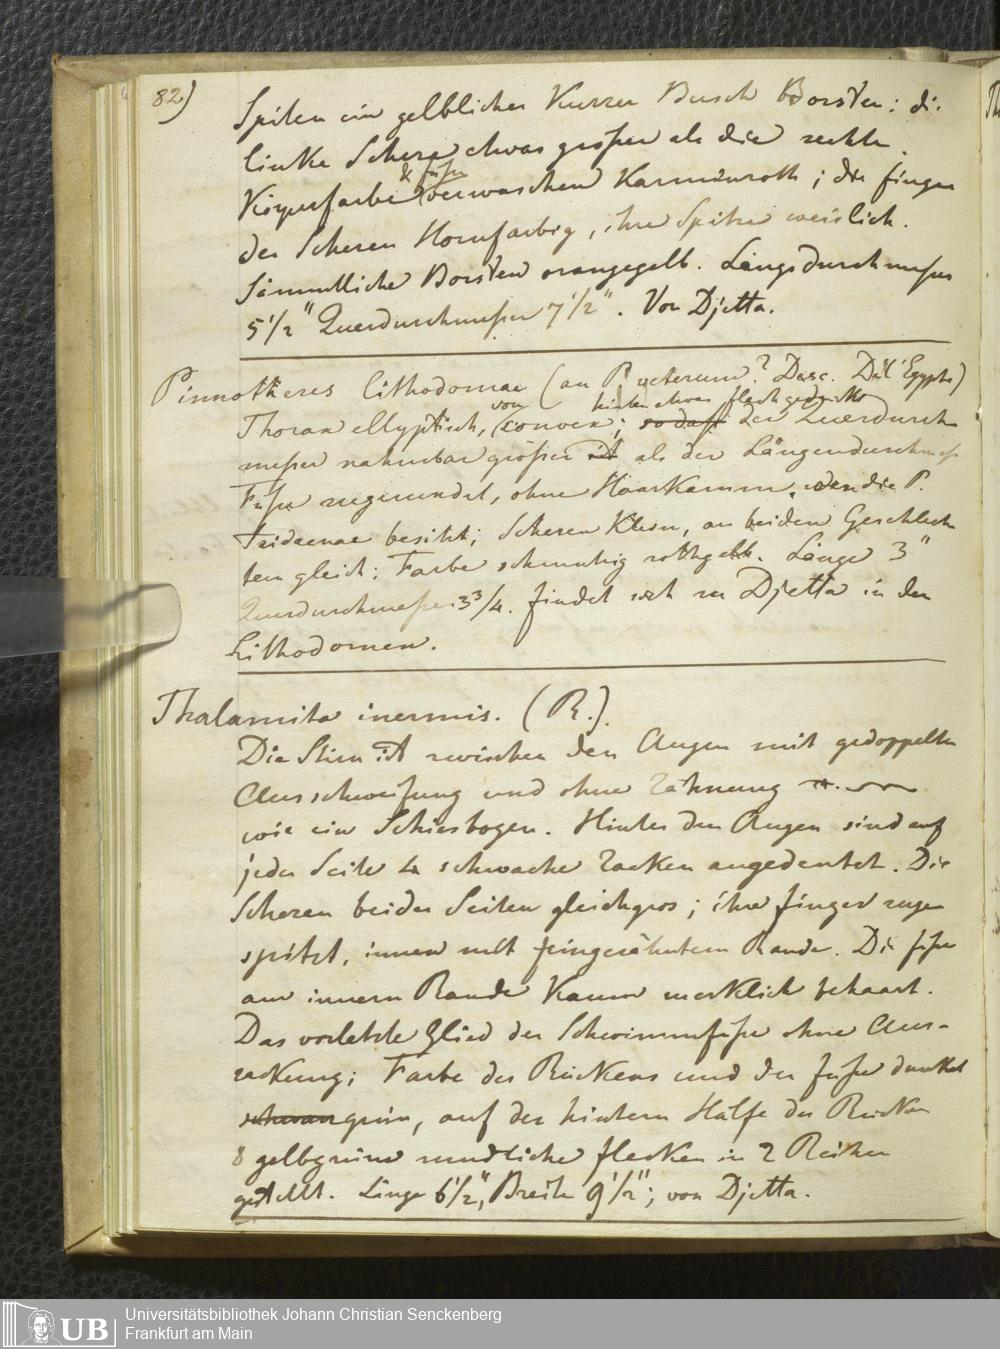 82)
Spizen ein gelblicher kurzer Busch Borsten: die
linke Schere etwas größer als die rechte.
Körperfarbe & Füße verwaschen Karminroth; die finger
der Scheren Hornfarbig, ihre Spitze weislich.
Sämmtliche Borsten orangegelb. Längsdurchmeßer
5 1/2" Querdurchmeßer 7 1/2". Von Djetta.
Pinnotheres lithodomae (an P. veterum? Desc. D. l'Egypte)
Thorax ellyptisch, convex; von hinten etwas flach gedrückt der Querdurch
meßer nahmbar größer als der Längendurchmeßer
Füße zugerundet, ohne Haarkamm, den die P.
Tridacnae besitzt; Scheren Klein, an beiden Geschlech
tern gleich; Farbe schmutzig rothgelb. Länge 3"
Querdurchmeßer 3 3/4. findet sich zu Djetta in den
Lithodomen.
Thalamita inermis. (R.)
Die Stirn ist zwischen den Augen mit gedoppelter
Ausschweifung und ohne Zähnung
wie ein Schiesbogen. Hinter den Augen sind auf
jeder Seite 4 schwache Zacken angedeutet. Die
Scheren beider Seiten gleichgros; ihre finger zuge
spitzt, innen mit feingezähntem Rande. Die füße
am innern Rande Kaum merklich behaart.
Das vorletzte Glied der Schwimmfüße ohne Aus-
zackung; Farbe des Rückens und der füße dunkel
schwarz grün, auf der hintern Hälfe des Rücken
8 gelbgrüne rundliche flecken in 2 Reihen
gestellt. Länge 6 1/2", Breite 9 1/2"; von Djetta.
UB
Universitätsbibliothek Johann Christian Senckenberg
Frankfurt am Main